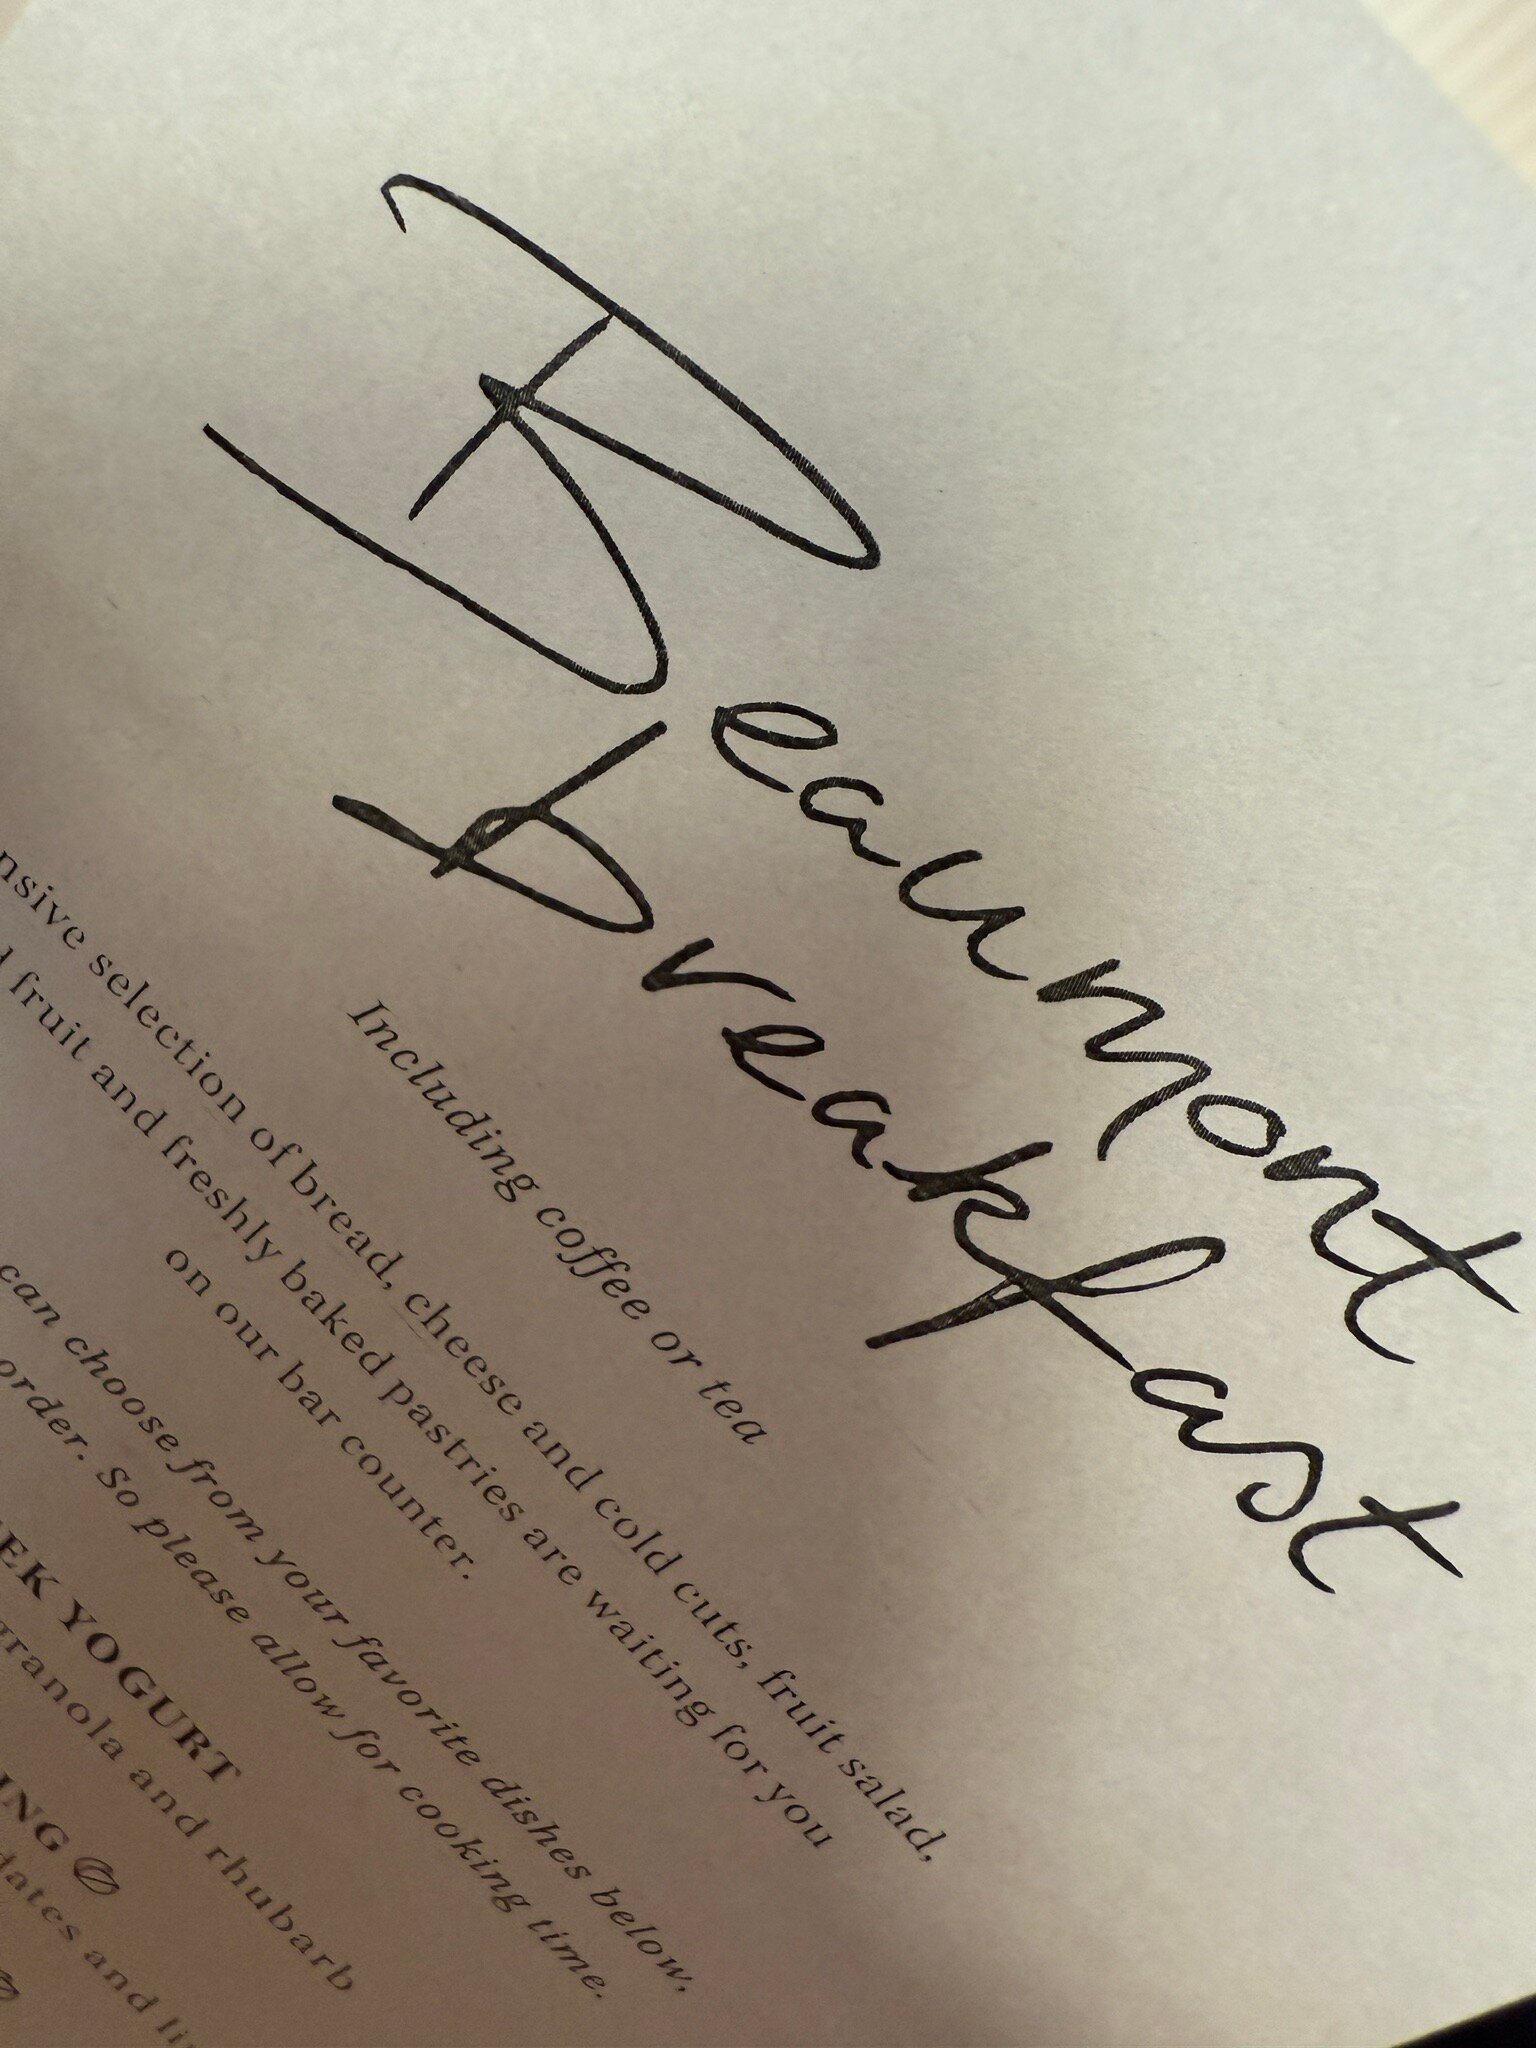 Beaumont
breakfast
Including coffee or tea
selection of bread, cheese and cold cuts, fruit salad,
fruit and freshly baked pastries are waiting for you
on our bar counter.
can choose from your favorite dishes below.
order. So please allow for cooking time.
YOGURT
granola and rhubarb
dates and